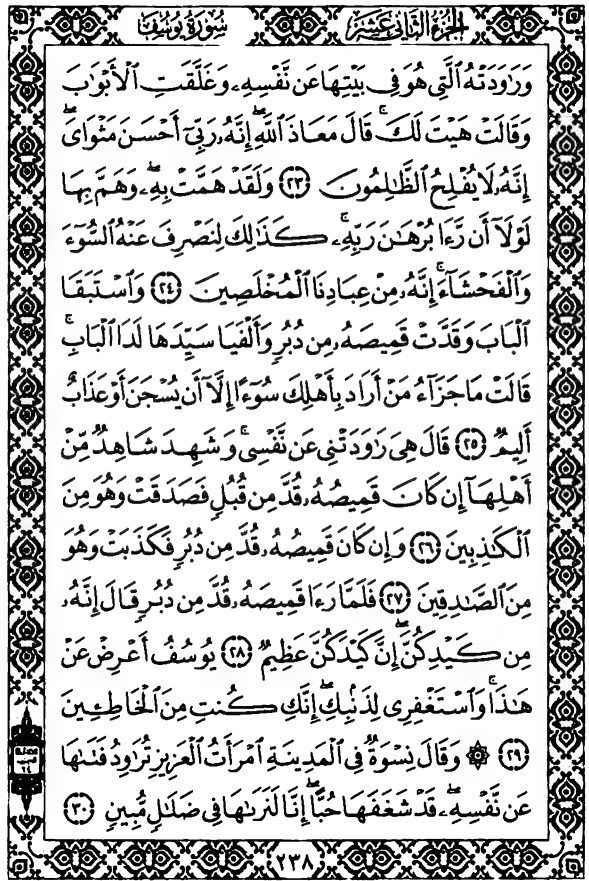 الجزء الثاني عشر سورة يوسف
وَرَاوَدَتْهُ الَّتِي هُوَ فِي بَيْتِهَا عَن نَّفْسِهِ وَغَلَّقَتِ الْأَبْوَابَ
وَقَالَتْ هَيْتَ لَكَ ۚ قَالَ مَعَاذَ اللَّهِ ۖ إِنَّهُ رَبِّي أَحْسَنَ مَثْوَايَ ۖ
إِنَّهُ لَا يُفْلِحُ الظَّالِمُونَ ٢٣ وَلَقَدْ هَمَّتْ بِهِ ۖ وَهَمَّ بِهَا
لَوْلَا أَن رَّءَا بُرْهَانَ رَبِّهِ ۚ كَذَٰلِكَ لِنَصْرِفَ عَنْهُ السُّوءَ
وَالْفَحْشَاءَ ۚ إِنَّهُ مِنْ عِبَادِنَا الْمُخْلَصِينَ ٢٤ وَاسْتَبَقَا
الْبَابَ وَقَدَّتْ قَمِيصَهُ مِن دُبُرٍ وَأَلْفَيَا سَيِّدَهَا لَدَا الْبَابِ ۚ
قَالَتْ مَا جَزَاءُ مَنْ أَرَادَ بِأَهْلِكَ سُوءًا إِلَّا أَن يُسْجَنَ أَوْ عَذَابٌ
أَلِيمٌ ٢٥ قَالَ هِيَ رَاوَدَتْنِي عَن نَّفْسِي ۚ وَشَهِدَ شَاهِدٌ مِّنْ
أَهْلِهَا إِن كَانَ قَمِيصُهُ قُدَّ مِن قُبُلٍ فَصَدَقَتْ وَهُوَ مِنَ
الْكَاذِبِينَ ٢٦ وَإِن كَانَ قَمِيصُهُ قُدَّ مِن دُبُرٍ فَكَذَبَتْ وَهُوَ
مِنَ الصَّادِقِينَ ٢٧ فَلَمَّا رَءَا قَمِيصَهُ قُدَّ مِن دُبُرٍ قَالَ إِنَّهُ
مِن كَيْدِكُنَّ ۖ إِنَّ كَيْدَكُنَّ عَظِيمٌ ٢٨ يُوسُفُ أَعْرِضْ عَنْ
هَٰذَا ۚ وَاسْتَغْفِرِي لِذَنبِكِ ۖ إِنَّكِ كُنتِ مِنَ الْخَاطِئِينَ
٢٩ ۞ وَقَالَ نِسْوَةٌ فِي الْمَدِينَةِ امْرَأَتُ الْعَزِيزِ تُرَاوِدُ فَتَاهَا
عَن نَّفْسِهِ ۖ قَدْ شَغَفَهَا حُبًّا ۖ إِنَّا لَنَرَاهَا فِي ضَلَالٍ مُّبِينٍ ٣٠
٢٣٨